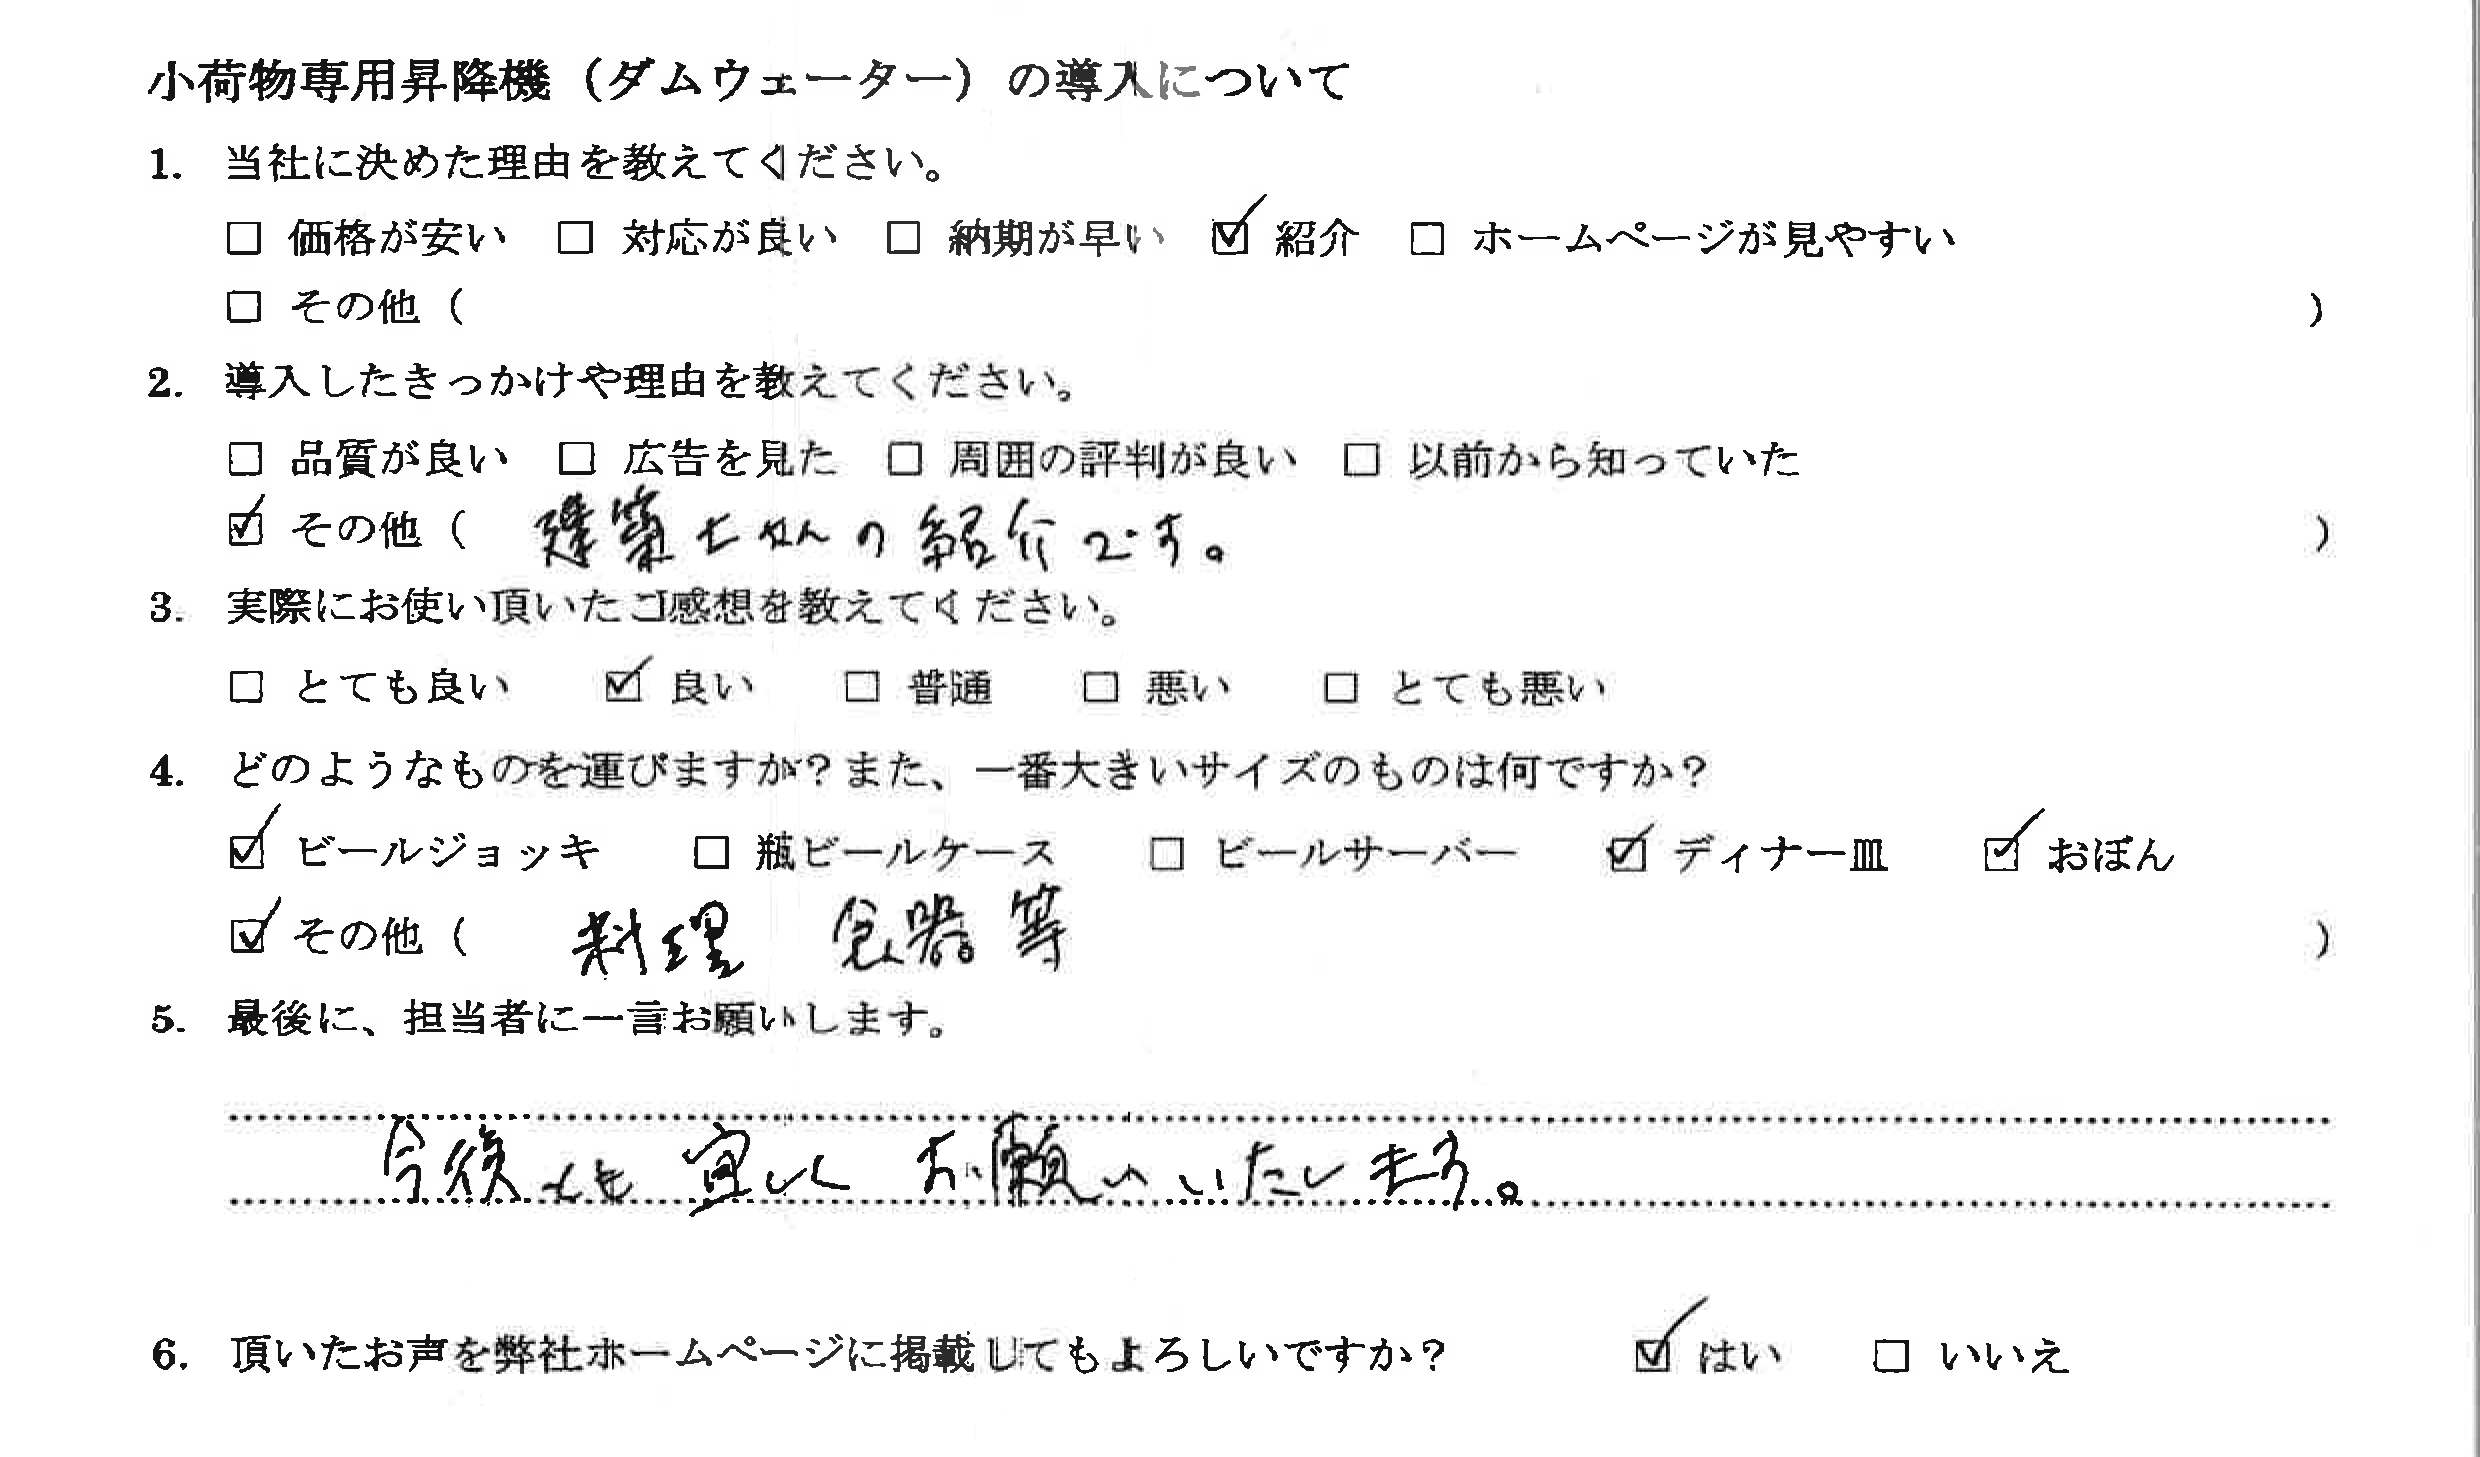 小荷物専用昇降機（ダムウェーター）の導入について
1. 当社に決めた理由を教えてください。
□ 価格が安い □ 対応が良い □ 納期が早い ☑ 紹介 □ ホームページが見やすい
□ その他（ ）
2. 導入したきっかけや理由を教えてください。
□ 品質が良い □ 広告を見た □ 周囲の評判が良い □ 以前から知っていた
☑ その他（ 建築士さんの紹介です。 ）
3. 実際にお使い頂いたご感想を教えてください。
□ とても良い ☑ 良い □ 普通 □ 悪い □ とても悪い
4. どのようなものを運びますか？また、一番大きいサイズのものは何ですか？
☑ ビールジョッキ □ 瓶ビールケース □ ビールサーバー ☑ ディナー皿 ☑ おぼん
☑ その他（ 料理 食器等 ）
5. 最後に、担当者に一言お願いします。
今後とも宜しくお願いいたします。
6. 頂いたお声を弊社ホームページに掲載してもよろしいですか？ ☑ はい □ いいえ